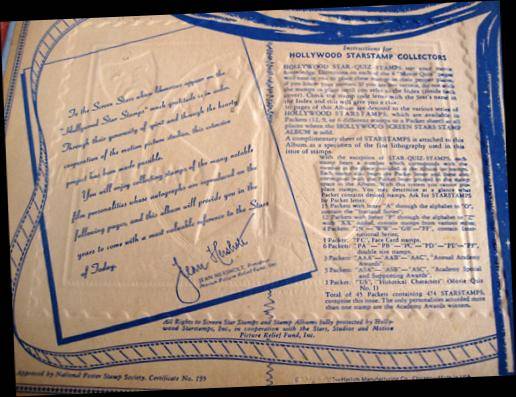 To the Screen Stars whose likenesses appear on the
"Hollywood Star Stamps" much gratitude is in order.
Through their generosity of spirit and through the hearty
cooperation of the motion picture studios, this
project has been made possible.
You will enjoy collecting stamps of the many notable
film personalities whose autographs are reproduced on the
following pages, and this album will provide you in the
years to come with a most valuable reference to the Stars
of Today.
Jean Hersholt
JEAN HERSHOLT, President
Motion Picture Relief Fund, Inc.
Instructions for
HOLLYWOOD STARSTAMP COLLECTORS
HOLLYWOOD STAR-QUIZ-STAMPS test your movie
knowledge. Directions on each of the 6 "Movie Quiz" pages
cover). Check the stamp code letter with the Star's name in
the Index and this will give you a clue.
pages of this Album are devoted to the various series of
HOLLYWOOD STARSTAMPS, which are available in
Packets (12, 9, or 6 different stamps to a Packet sheet) at all
places where the HOLLYWOOD SCREEN STARS STAMP
ALBUM is sold.
A complimentary sheet of STARSTAMPS is attached to this
Album as a specimen of the fine lithography used in this
issue of stamps.
With the exception of STAR-QUIZ-STAMPS, each
space in the Album. With this system you cannot
place stamps. You may determine at a glance what
Packet contains desired stamps. Ask for STARSTAMPS
by Packet letter.
15 Packets with letter "A" through the alphabet to "O",
contain the "National Series".
Packets with letter "P" through the alphabet to "Z"
with "XX" added, contain stamps from various
4 Packets; "IN — WW — GB — FF", contain International Series.
1 Packet; "FC", Face Card stamps.
6 Packets; "PA — PB — PC — PD — PE — PF",
double size stamps.
3 Packets; "AAA — AAB — AAC", "Annual Academy
Awards"
3 Packets; "ASA — ASB — ASC", "Academy Special
and Supporting Awards".
1 Packet; "US", "Historical Characters" (Movie Quiz
No. 1)
Total of 45 Packets containing 474 STARSTAMPS,
comprise this issue. The only personalities accorded more
than one stamp are the Academy Awards winners.
All Rights to Screen Star Stamps and Stamp Albums fully protected by Holly-
wood Starstamps, Inc., in cooperation with the Stars, Studios and Motion
Picture Relief Fund, Inc.
Approved by National Poster Stamp Society. Certificate No. 195